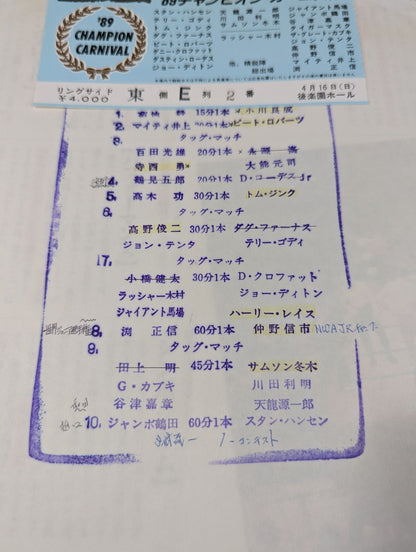 '89チャンピオン・カ
'89
CHAMPION
CARNIVAL
スタン・ハンセン
テリー・ゴディ
トム・ジンク
ダグ・ファーナス
ビート・ロバーツ
ダニー・クロファット
ダスティ・ローデス
ジョー・ディトン
天龍源一郎
川田利明
サムソン冬木
ラッシャー木村
他、精鋭陣
総出場
ジャイアント馬場
ジャンボ鶴田
谷津嘉章
タイガーマスク
ザ・グレート・カブキ
仲野信市
高野俊二
マイティ井上
渕正信
リングサイド
¥4,000
東 側 E 列 2 番
4月16日(日)
後楽園ホール
1. 菊地 毅 15分1本 小川良成
2. マイティ井上 30分1本 ビート・ロバーツ
3. タッグ・マッチ
百田光雄 20分1本 永源 遙
寺西 勇 大熊元司
4. 鶴見五郎 20分1本 D・ローデスJr
5.高木 功 30分1本 トム・ジンク
6. タッグ・マッチ
高野俊二 30分1本 ダグ・ファーナス
ジョン・テンタ テリー・ゴディ
7. タッグ・マッチ
小橋健太 30分1本 D・クロファット
ラッシャー木村 ジョー・ディトン
ジャイアント馬場 ハーリー・レイス
8. 渕 正信 60分1本 仲野信市
9. タッグ・マッチ
田上 明 45分1本 サムソン冬木
G・カブキ 川田利明
谷津嘉章 天龍源一郎
10. ジャンボ鶴田 60分1本 スタン・ハンセン
ノーコンテスト